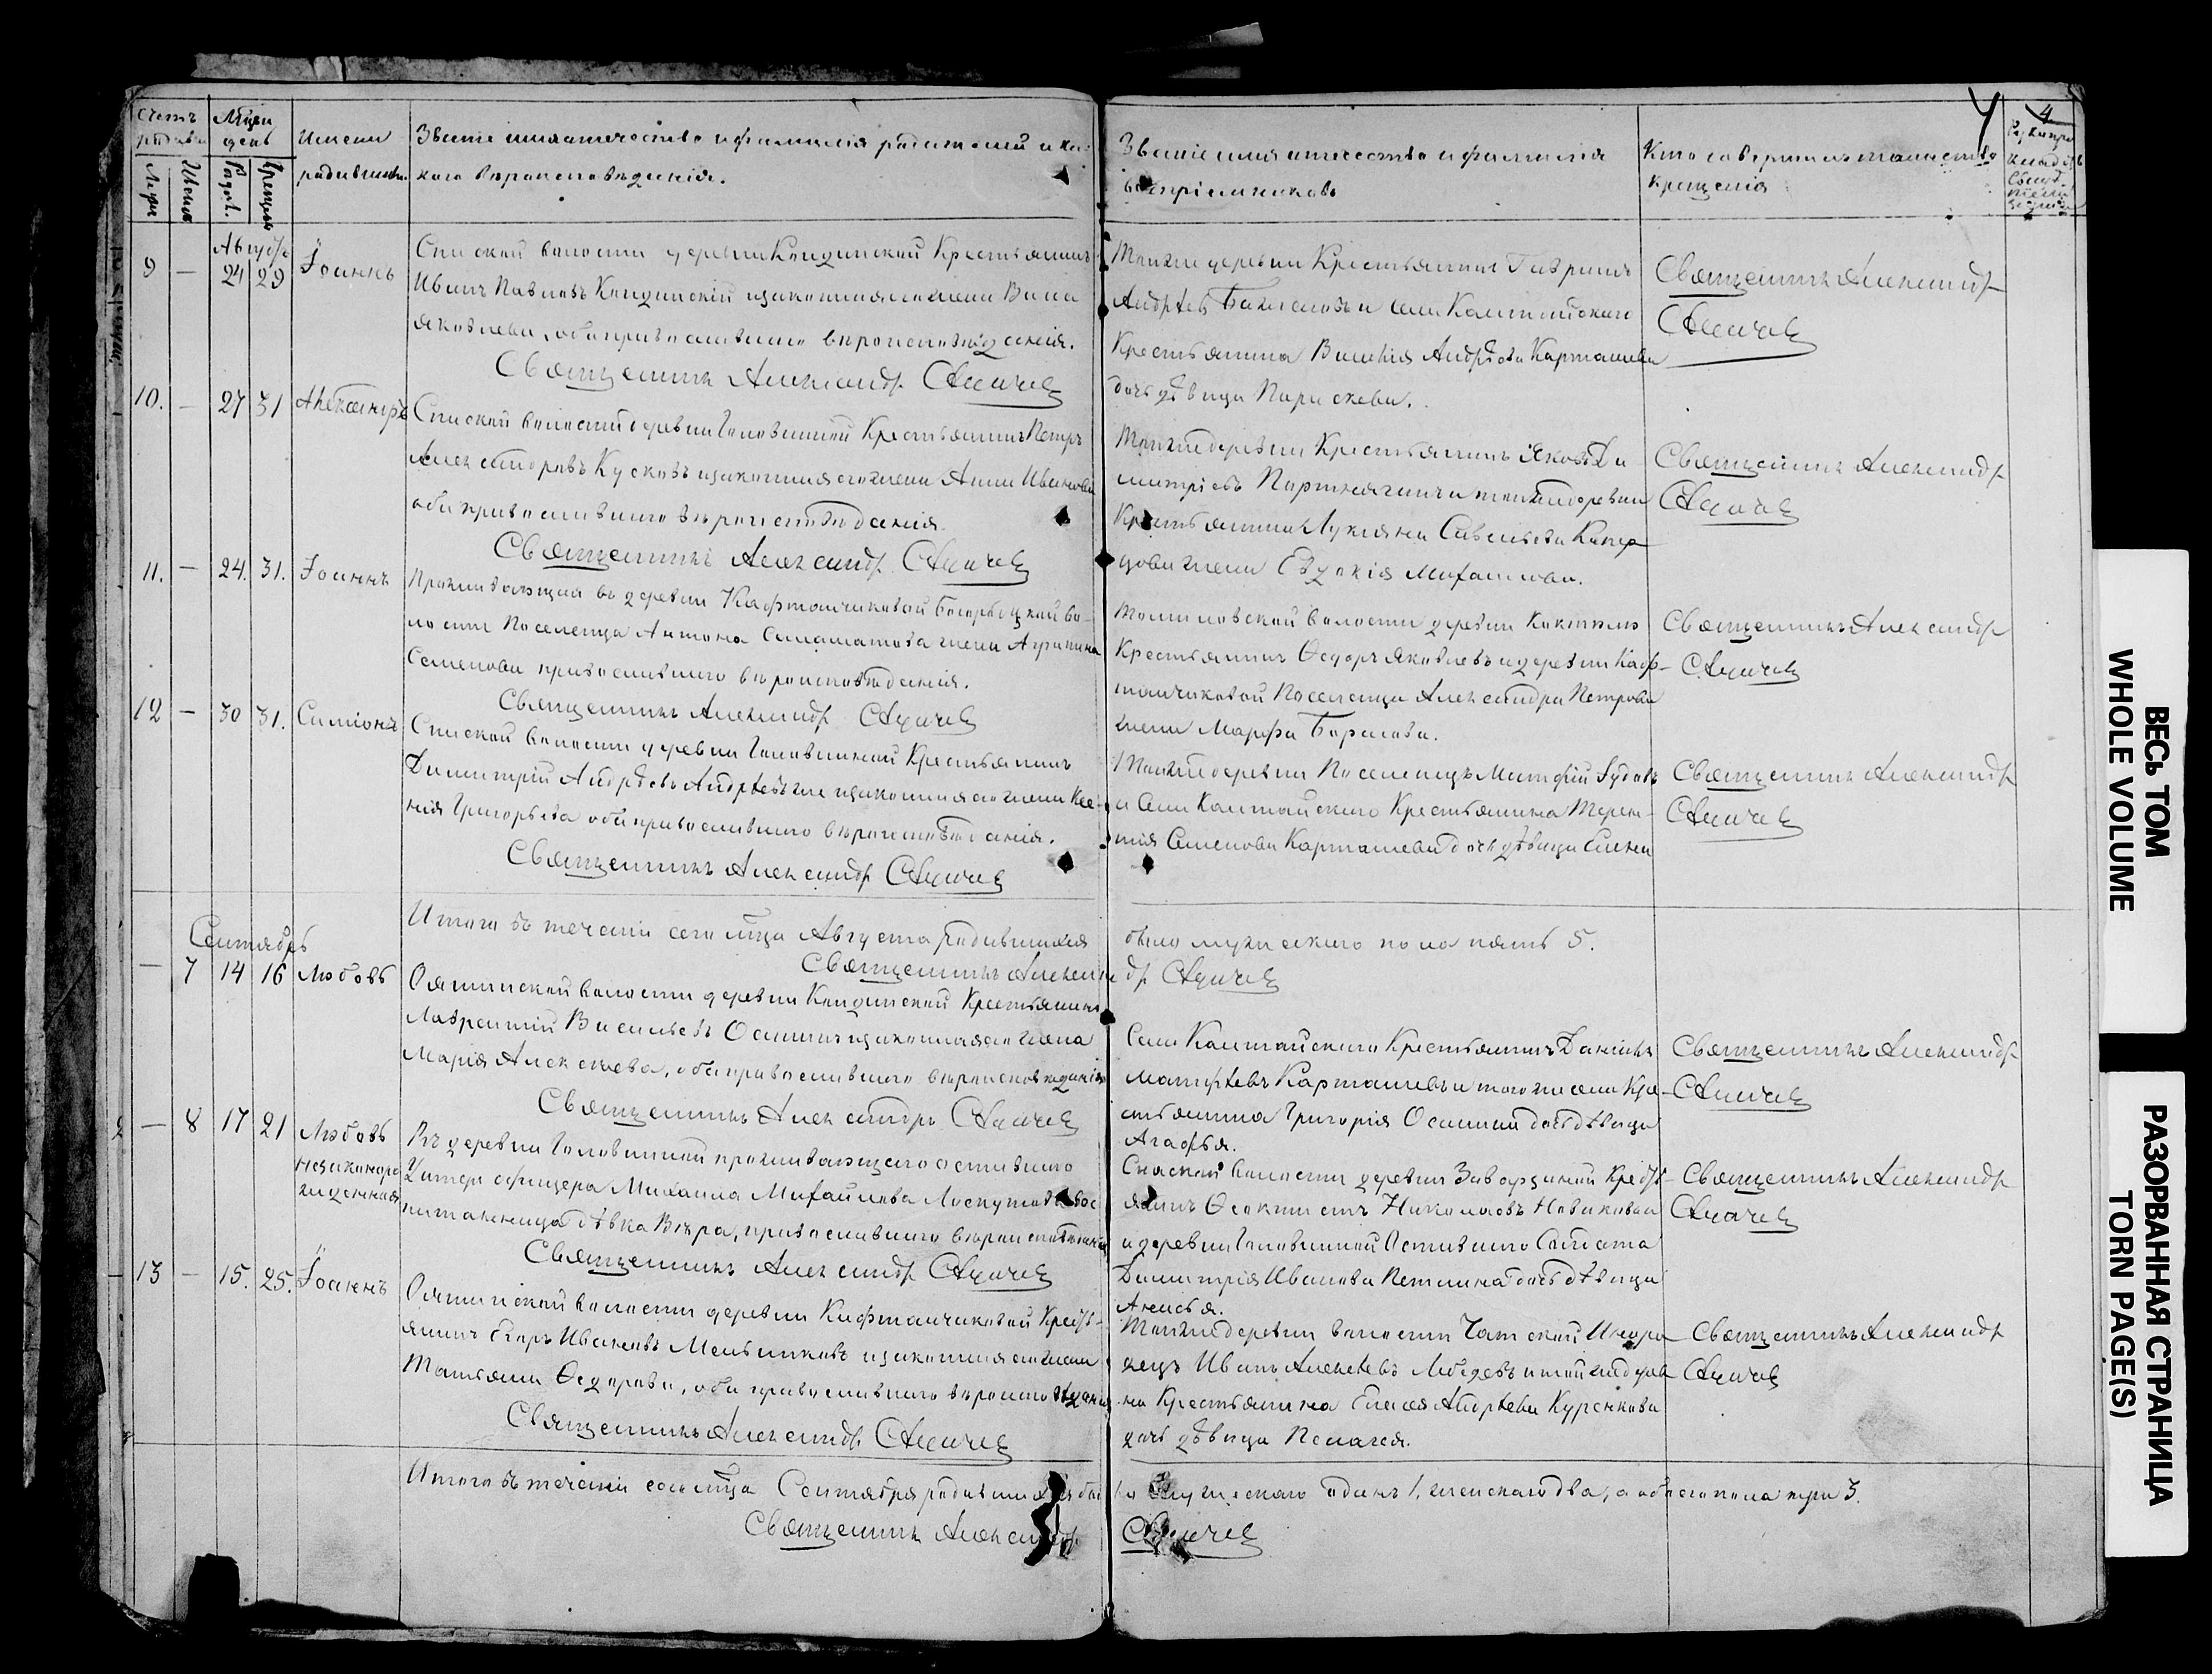 Счетъ родивш.
Мѣсяцъ день
Имена
родившихся.
Званіе имя отчество и фамилія родителей и ка-
кого вѣроисповѣданія.
Званіе имя отчество и фамилія
воспріемниковъ
Кто совершилъ таинство
крещенія
4
Августъ
9 — 24 29 Іоаннъ
Спаской волости деревни Кандинской Крестьянинъ
Иванъ Павловъ Кандинскій и законная его жена Васса
Яковлева, оба православнаго вѣроисповѣданія.
Священникъ Александръ
Той же деревни Крестьянинъ Гавріилъ
Андрѣевъ и села Калтайского
Крестьянина Василія Андрѣева Карташева
дочь дѣвица Параскева.
Священникъ Александръ
10. — 27 31 Александръ
Спаской волости деревни Головинной Крестьянинъ Петръ
Александровъ Кусковъ и законная его жена Анна Иванова
оба православнаго вѣроисповѣданія.
Священникъ Александръ
Той же деревни Крестьянинъ Яковъ Ди-
митріевъ и той же деревни
Крестьянина Лукіяна Савельева
жена Евдокія Михайлова.
Священникъ Александръ
11. — 24. 31. Іоаннъ
Проживающая въ деревни Кафтанчиковой во-
лости Поселенца Антона жена Агрипина
Семенова православнаго вѣроисповѣданія.
Священникъ Александръ
волости деревни
Крестьянинъ Ѳедоръ Яковлевъ и деревни Каф-
танчиковой Поселенца Александра Петрова
жена Марфа Борисова.
Священникъ Александръ
12 — 30 31. Симіонъ
Спаской волости деревни Головинной Крестьянинъ
Димитрій Андрѣевъ Андрѣевъ же и законная его жена Ксе-
нія Григорьева оба православнаго вѣроисповѣданія.
Священникъ Александръ
Той же деревни Поселенецъ Матфій
и Села Калтайского Крестьянина Терен-
тія Семенова Карташева дочь дѣвица Елена
Священникъ Александръ
Итого въ теченіи сего мѣсяца Августа родившихся
было мужескаго пола пять 5.
Священникъ Александръ
Сентябрь
— 7 14 16 Любовь
волости деревни Кандинской Крестьянинъ
Лаврентій Васильевъ Осипинъ и законная его жена
Марія Алексѣева, оба православнаго вѣроисповѣданія
Священникъ Александръ
Села Калтайского Крестьянинъ Даніилъ
Матфѣевъ Карташевъ и того же села Кре-
стьянина Григорія дочь дѣвица
Агафья.
Священникъ Александръ
— 8 17 21 Любовь
незаконоро
жденная
Въ деревни Головинной проживающаго отставнаго
Унтеръ офицера Михаила Михайлова Лоскутова вос
питанница дѣвка Вѣра, православнаго вѣроисповѣданія
Священникъ Александръ
Спаской волости деревни Заварзиной Кресть-
янинъ Ѳеоктистъ Николаевъ Новиковъ
и деревни Головинной Отставнаго Солдата
Димитрія Иванова дочь дѣвица
Анисья.
Священникъ Александръ
13 — 15. 25. Іоаннъ
волости деревни Кафтанчиковой Кресть-
янинъ Егоръ Ивановъ Мельниковъ и законная его жена
Татьяна Ѳедорова, оба православнаго вѣроисповѣданія
Священникъ Александръ
Той же деревни волости Чатской Иноро-
децъ Иванъ Алексѣевъ Лебедевъ и той же дерев-
ни Крестьянина Елисея Андрѣева Куренкова
дочь дѣвица Пелагея.
Священникъ Александръ
Итого въ теченіи сего мѣсяца Сентября родившихся бы-
ло мужескаго одинъ 1, женскаго два, а обоего пола три 3.
Священникъ Александръ
ВЕСЬ ТОМ
WHOLE VOLUME
РАЗОРВАННАЯ СТРАНИЦА
TORN PAGE(S)